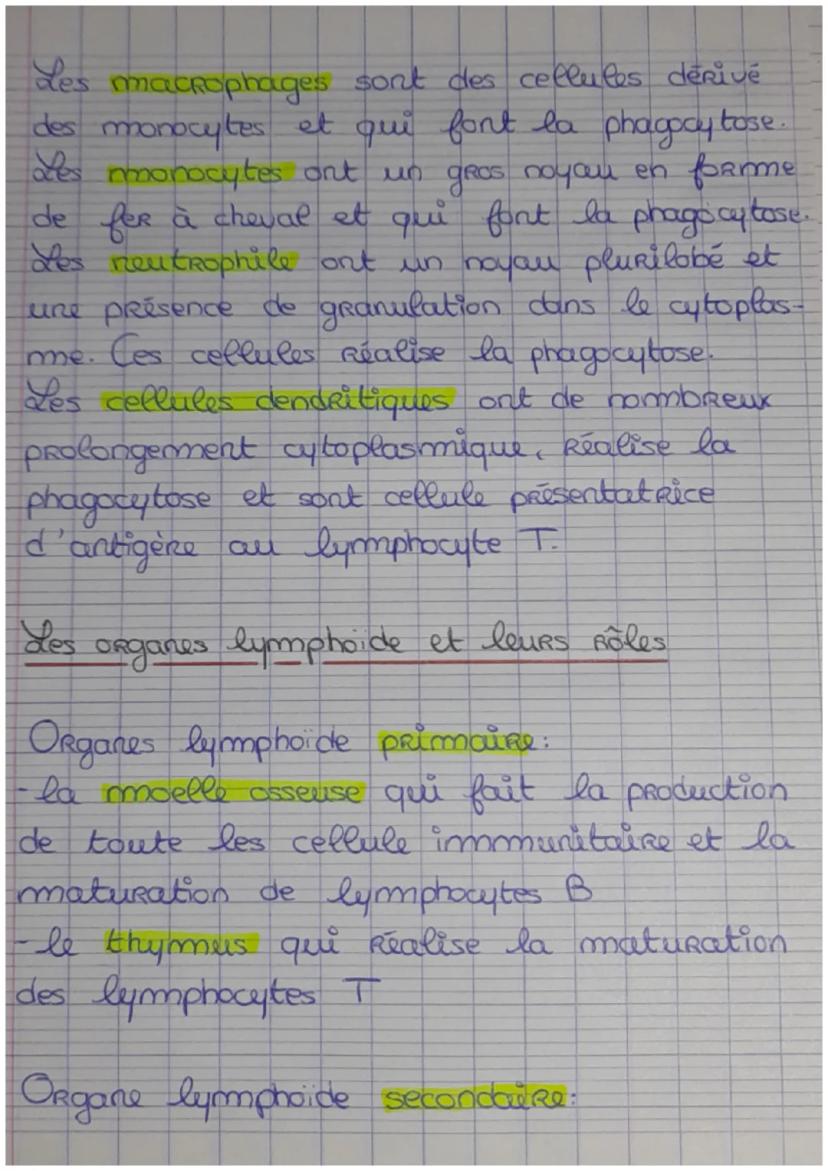 Les macrophages sont des cellules dérivé
des monocytes et qui font la phagocytose.
Les monocytes ont un gros noyau en forme
de fer à cheval et qui font la phagocytose.
Les neutrophile ont un noyau plurilobé et
une présence de granulation dans le cytoplas-
me. Ces cellules réalise la phagocytose.
Les cellules dendritiques ont de nombreux
prolongement cytoplasmique, réalise la
phagocytose et sont cellule présentatrice
d'antigène au lymphocyte T.
Les organes lymphoïde et leurs rôles
Organes lymphoïde primaire:
-la moelle osseuse qui fait la production
de toute les cellule immmunitaire et la
maturation de lymphocytes B
-le thymus qui réalise la maturation
des lymphocytes T
Organe lymphoïde secondaire: